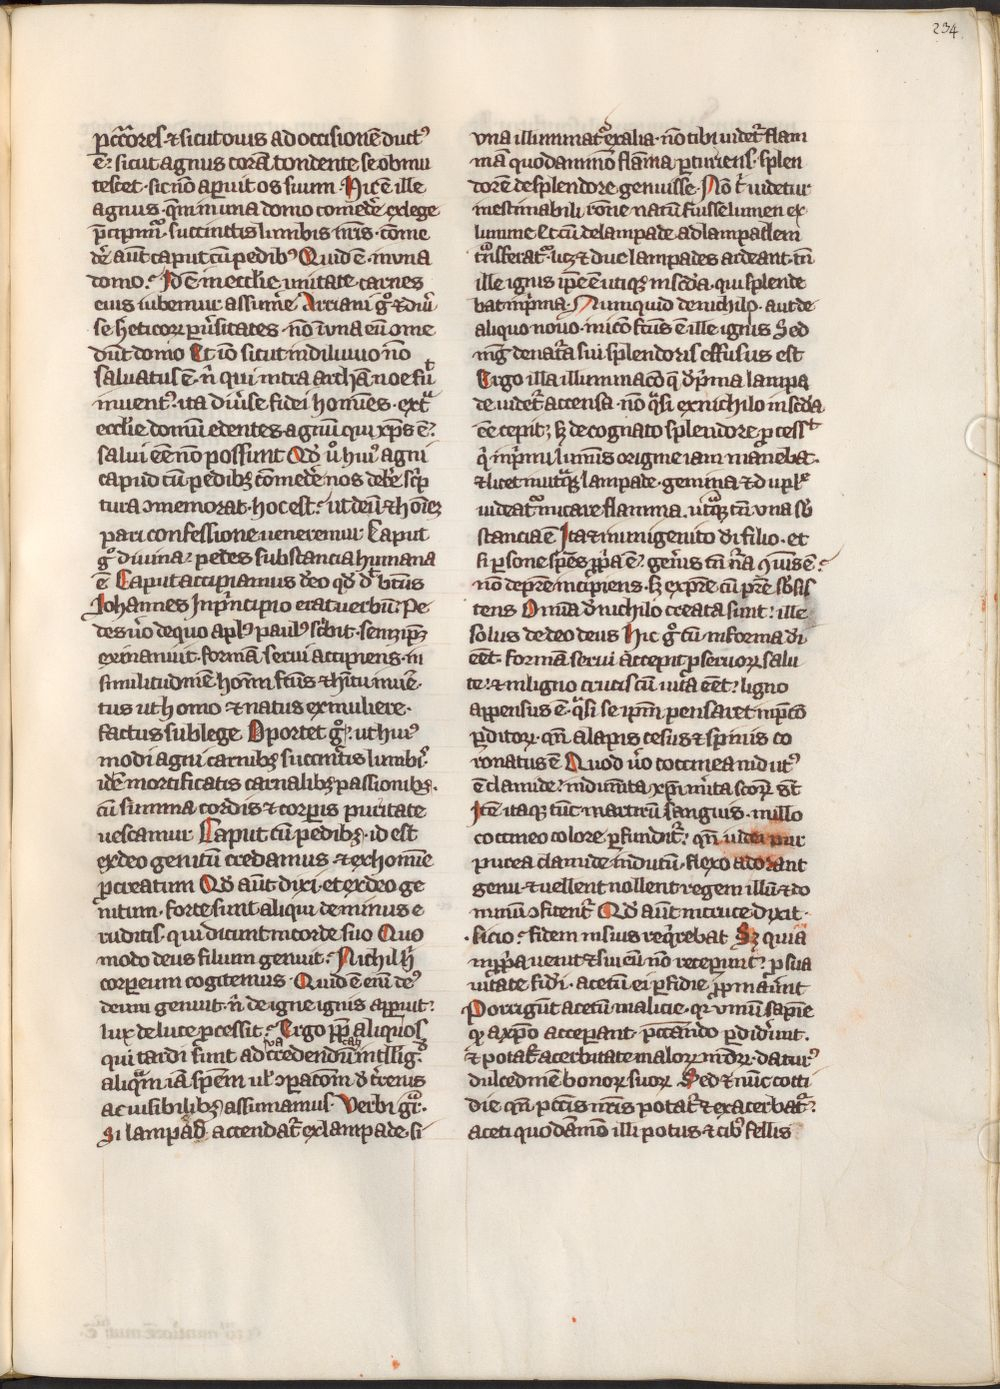 234
pccōres · ⁊ sicut ouis ad occisionē duct⁹
ē: sicut agnus corā tondente se obmu
tescet · sic nō aperuit os suum · Hic ē ille
agnus · quē in una domo comedē ex lege
p̄cipimr̄ · succinctis lumbis nr̄is · come
dē aūt caput cū pedib⁹ Quid ē · in vna
domo? Id ē in eccl̄ie unitate · carnes
eius iubemur assumē Arriani gͦ ⁊ diu̾
se h̾eticoꝝ pu̾sitates · nō ī vna eū ꝯme
dūt domo Et iō sicut in diluuio nō
saluatus ē · n̄ qui intra archā noe fuit
inuent⁹ · ita diu̾se fidei homīes · extᵃ
eccl̄ie domū edentes agnū qui xp̄s ē ·
salui eē nō possunt Qd̄ u̾ hui⁹ agni
capud cū pedibꝫ comedē nos debē sc̾p
tura ꝯmemorat · hoc est · ut deū ⁊ hoīeꝫ
pari confessione ueneremur Caput
gͦ diuina · pedes substancia humana
ē Caput accipiamus d̾eo qd̄ d̾ bt̄us
Johannes In p̄ncipio erat uerbū · Pe
des u̾o de quo apl̄s paul⁹ sc̾bit · semꝫ ip̄ꝫ
exinaniuit · formā serui accipiens · in
similitudinē homī fc̄us ⁊ hītu inuē ·
tus ut homo ⁊ natus ex muliere ·
factus sub lege Oportet gͦ · ut hui⁹
modi agni carnibꝫ succīctis lumbis ·
id ē mortificatis carnalibꝫ passionibꝫ ·
cū summa cordis ⁊ corꝑis puritate
uescamur Caput cū pedibꝫ · id est
ex deo genitū credamus · ⁊ ex homīe
ꝓcreatum Qd̄ aūt dixi · et ex deo ge
nitum · forte sunt aliqui de minus e
ruditis · qui dicunt in corde suo Quo
modo deus filium genuit · Nichil h̾
corporeum cogitemus · Quid ē enī de⁹
deum genuit · n̄ de igne ignis apparuit ·
lux de luce ꝓcessit · Ergo ꝓpt̄ aliquos
qui tardi sunt ad credendū intllig̾
aliquā iā spem uł ꝯꝑacōm d̾ t̾renis
ac uisibilibꝫ assumamus · Verbi gr̄a ·
Si lampad̾ accendat̄ ex lampade · si
vna illuminat̄ ex alia · nō tibi uidet̄ flam
mā quodammō flāma ꝑturiens · splen
dorē de splendore genuisse · Nō t̄ uidetur
inestimabili rōne natū fuisse lumen ex
lumine Et cū de lampade ad lampadem
tᵃnsferat̄ · lux ⁊ due lampades ardeant · tn̄
ille ignis ip̄e ē utiqꝫ in sc̄da · qui splende
bat in p̄ma · Numquid de nichilo · aut de
aliquo nouo · initō fc̄us ē ille ignis Sed
mḡ de nat̾a sui splendoris effusus est
Ergo illa illuminacō q̄ d̾ p̄ma lampa
de uidet̄ accensa · nō qᵃsi ex nichilo in sc̄da
eē cepit · sꝫ de cognato splendore ꝓcessit
qͥ in p̄mi luminis origine iam manebat ·
⁊ licet in utᵃqꝫ lampade · gemina ⁊ duplex
uideat̄ micare flamma · utᵃqꝫ tn̄ vna sb̄
stancia ē Ita ⁊ in unigenito di filio · et
si ꝑsone spēs ꝓp̄a ē · gen̾is tn̄ nr̄a qͥuis ē ·
nō de pr̄e incipiens · sꝫ ex pr̄e cū pr̄e sb̄sis
tens Omīa d̾ nichilo creata sunt · ille
solus de deo deus Hic gͦ cū in forma di
eēt · formā serui accepit ꝓ seruoꝝ salu
te · ⁊ in ligno crucis cū uita eēt · ligno
appensus ē · qᵃsi se ip̄m pensaret in p̄cō
ꝑditoꝝ · qn̄ alapis cesus ⁊ spinis co
ronatus ē Quod u̾o coccinea indut⁹
ē clamide · indumīta xp̄i mīta scōꝝ st̄
Itē itaqꝫ tūc martirū sanguis · in illo
coccineo colore ꝑfundit̄ · qn̄ iudei pur
purea clamide indutū · flexo adorant
genu · ⁊ uellent nollent regem illū ⁊ do
minū ꝯfitent̄ Qd̄ aūt in cruce dixit ·
· sicio · fidem in suis req̾rebat Sꝫ quia
in ꝓp̾a uenit ⁊ sui eū nō receperunt · ꝓ sua
uitate fidei · acetū ei ꝑfidie ꝓpinauerunt
Porrigūt acetū malicie · qr̾ vinū sapīe
qͦ a xp̄o acceperant · peccando ꝑdidērunt ·
⁊ potat̄ acerbitate maloꝝ mūdi · datur⁹
dulcedinē bonoꝝ suoꝝ Sed ⁊ nūc cotti
die qn̄ pccīs nr̄is potat̄ ⁊ exacerbat̄ ·
aceti quodāmō illi potus ⁊ cib⁹ fellis